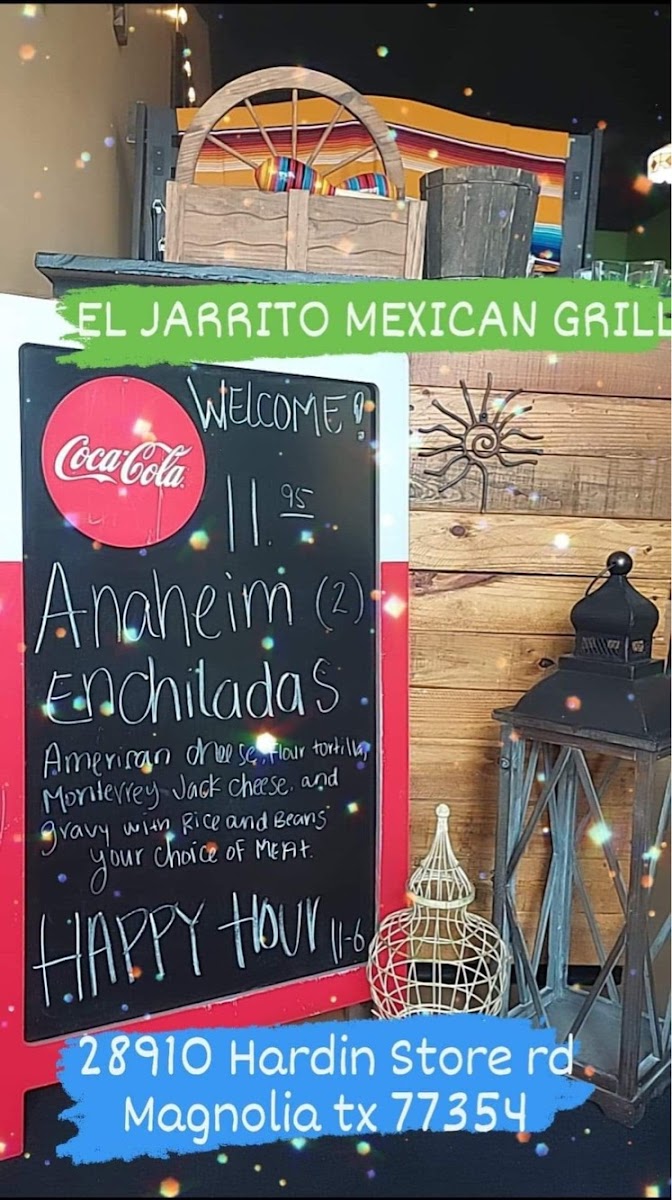 EL JARRITO MEXICAN GRILL
WELCOME!
Coca-Cola
11.95
Anaheim (2)
Enchiladas
American cheese, flour tortilla,
Monterrey Jack cheese, and
gravy with Rice and Beans
your choice OF MEAt.
HAPPY HOUr 11-6
28910 Hardin Store rd
Magnolia tx 77354